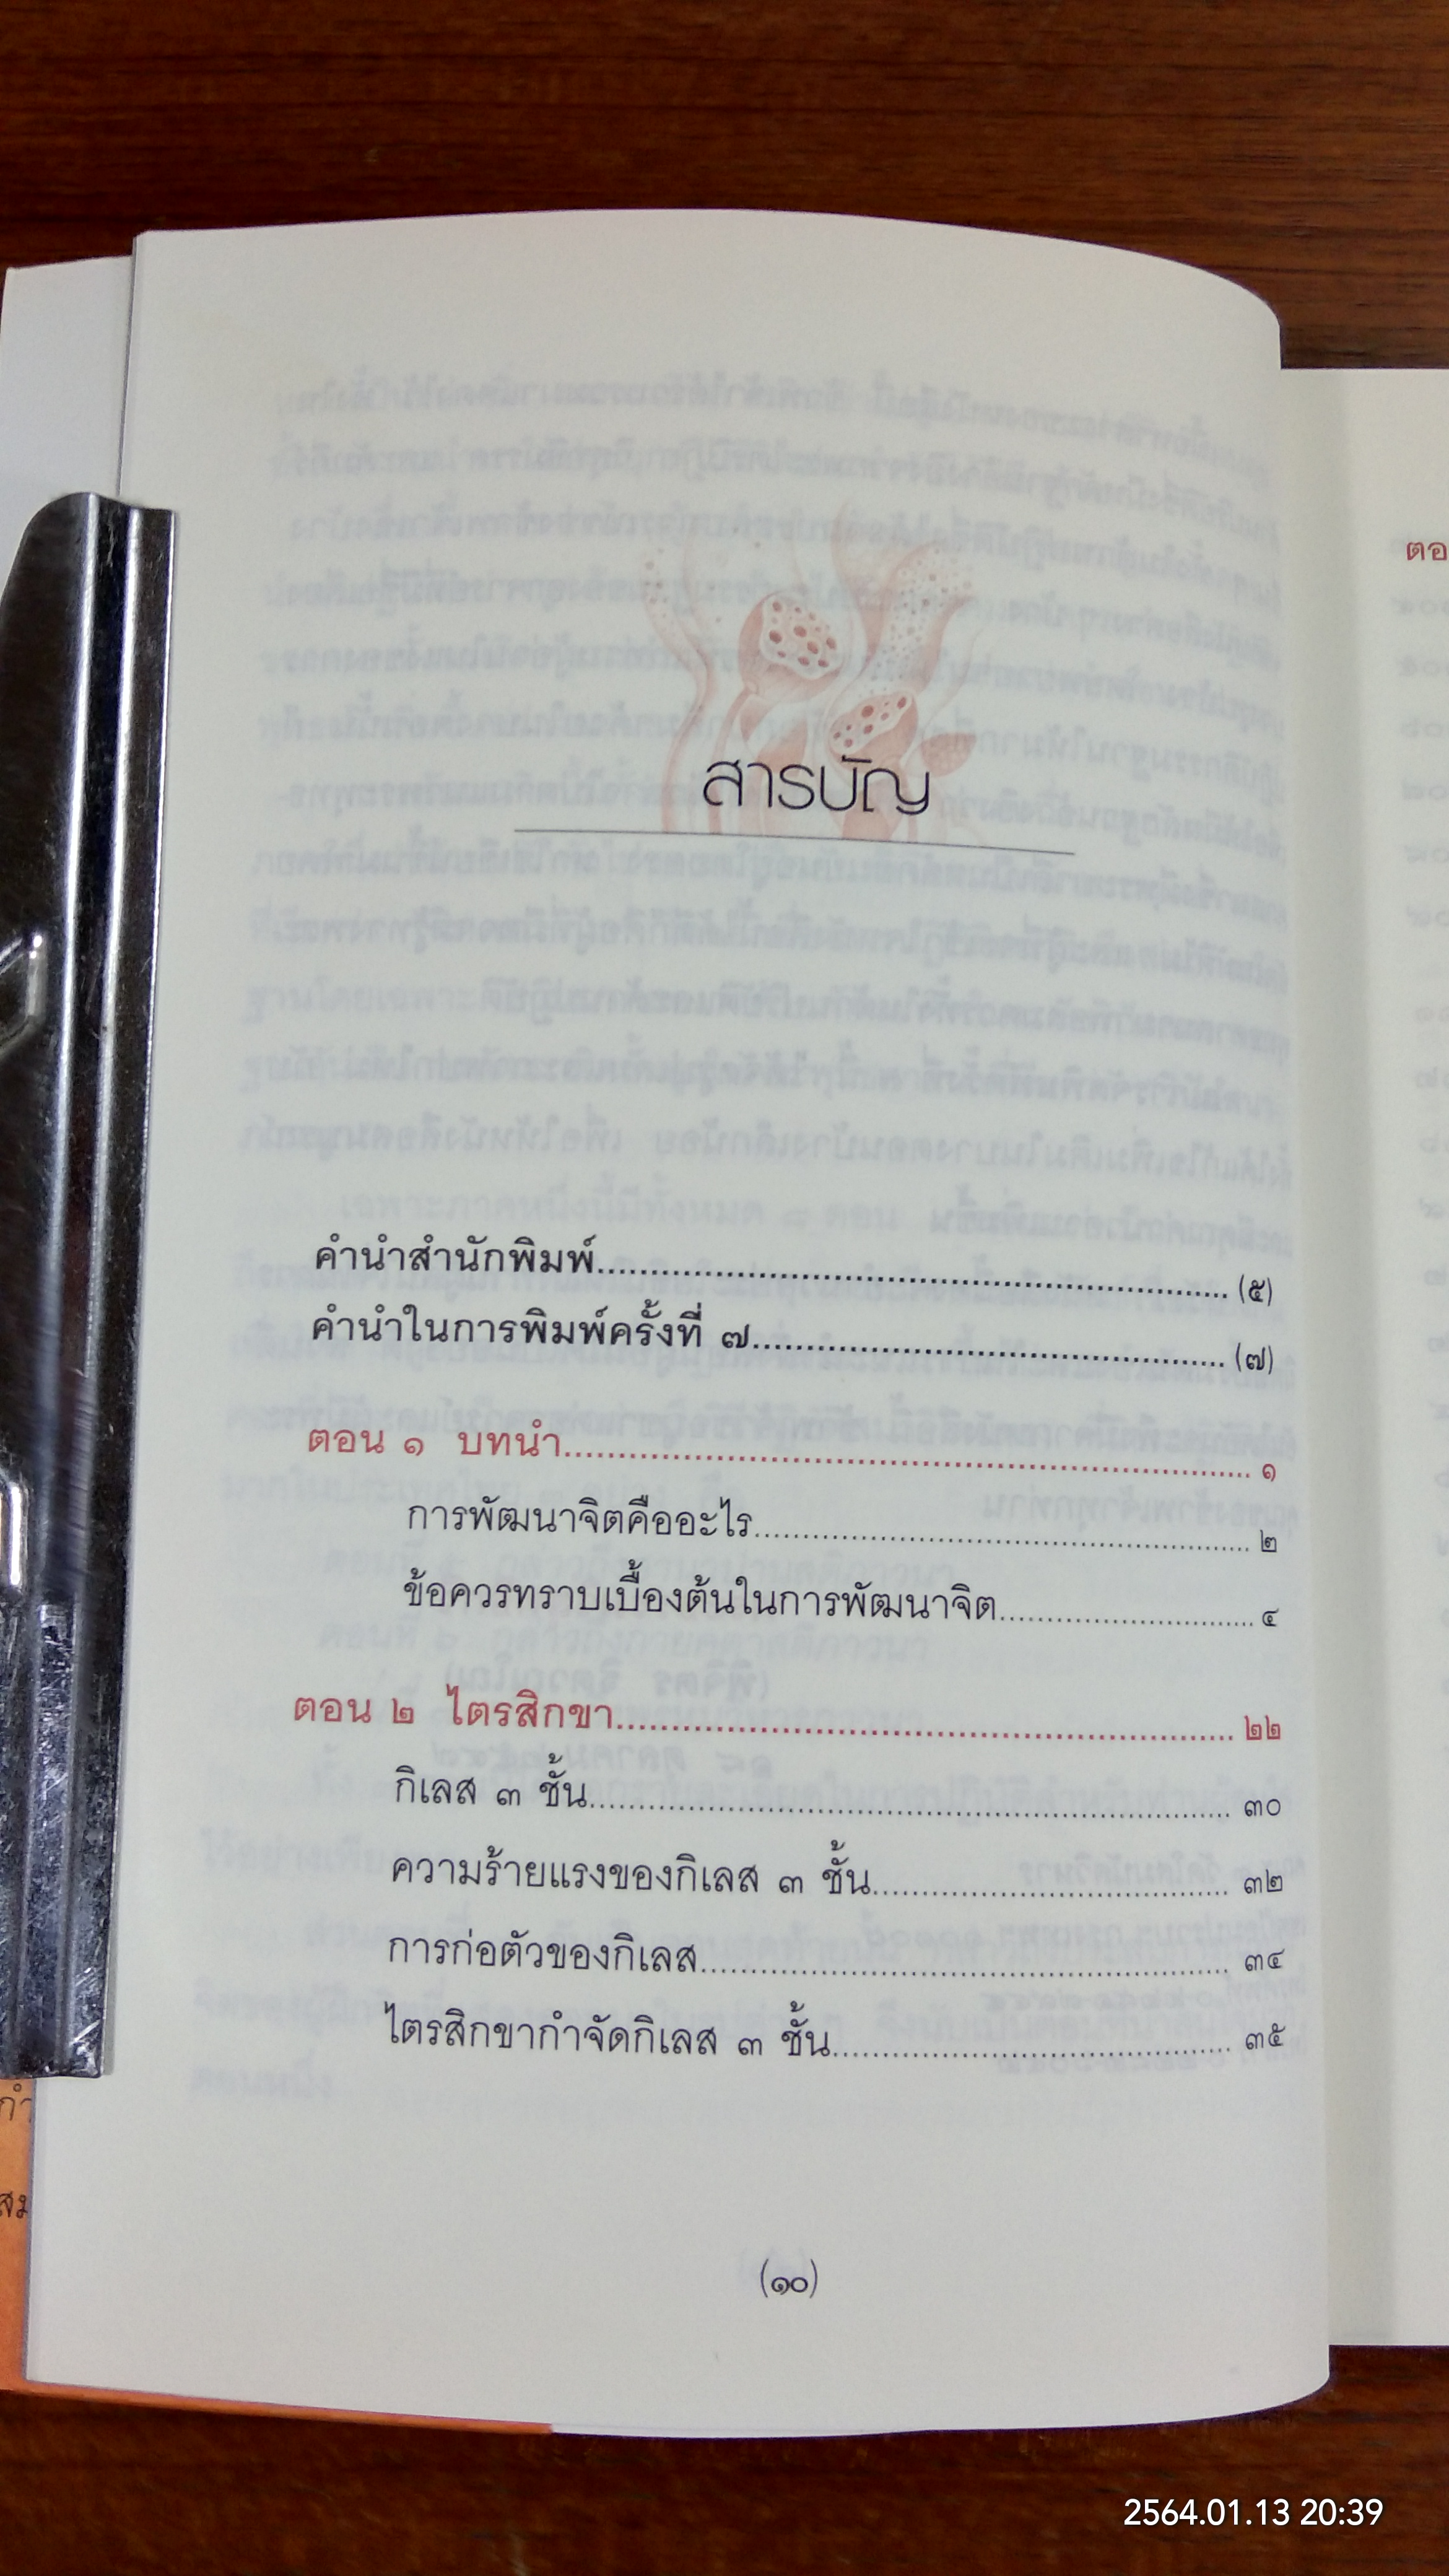 สารบัญ
คำนำสำนักพิมพ์ (๕)
คำนำในการพิมพ์ครั้งที่ ๗ (๗)
ตอน ๑ บทนำ ๑
การพัฒนาจิตคืออะไร ๒
ข้อควรทราบเบื้องต้นในการพัฒนาจิต ๔
ตอน ๒ ไตรสิกขา ๒๒
กิเลส ๓ ชั้น ๓๐
ความร้ายแรงของกิเลส ๓ ชั้น ๓๒
การก่อตัวของกิเลส ๓๔
ไตรสิกขากำจัดกิเลส ๓ ชั้น ๓๕
(๑๐)
ตอ
กำ
สม
2564.01.13 20:39